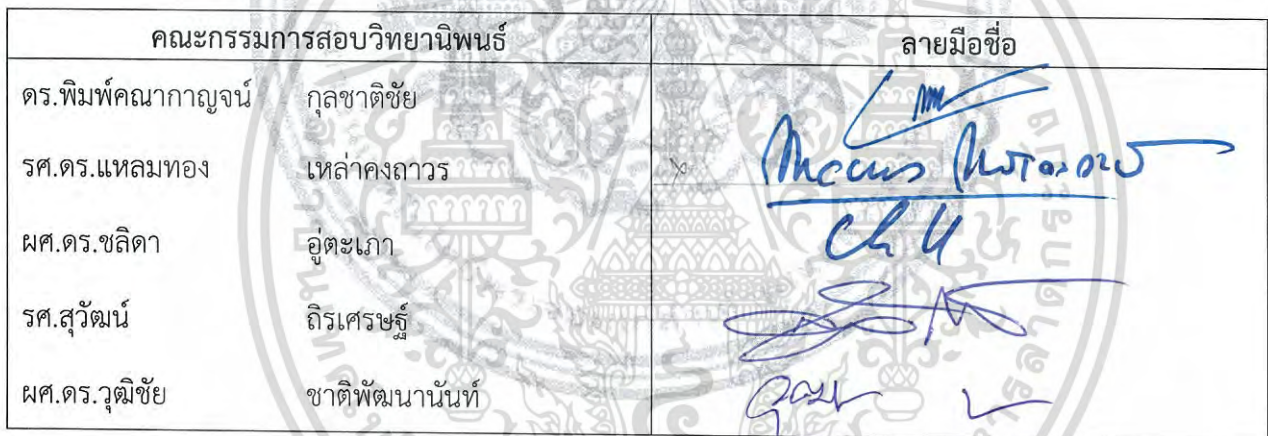 คณะกรรมการสอบวิทยานิพนธ์ ลายมือชื่อ
ดร.พิมพ์คณากาญจน์ กุลชาติชัย
รศ.ดร.แหลมทอง เหล่าคงถาวร
ผศ.ดร.ชลิดา อู่ตะเภา
รศ.สุวัฒน์ ถิรเศรษฐ์
ผศ.ดร.วุฒิชัย ชาติพัฒนานันท์